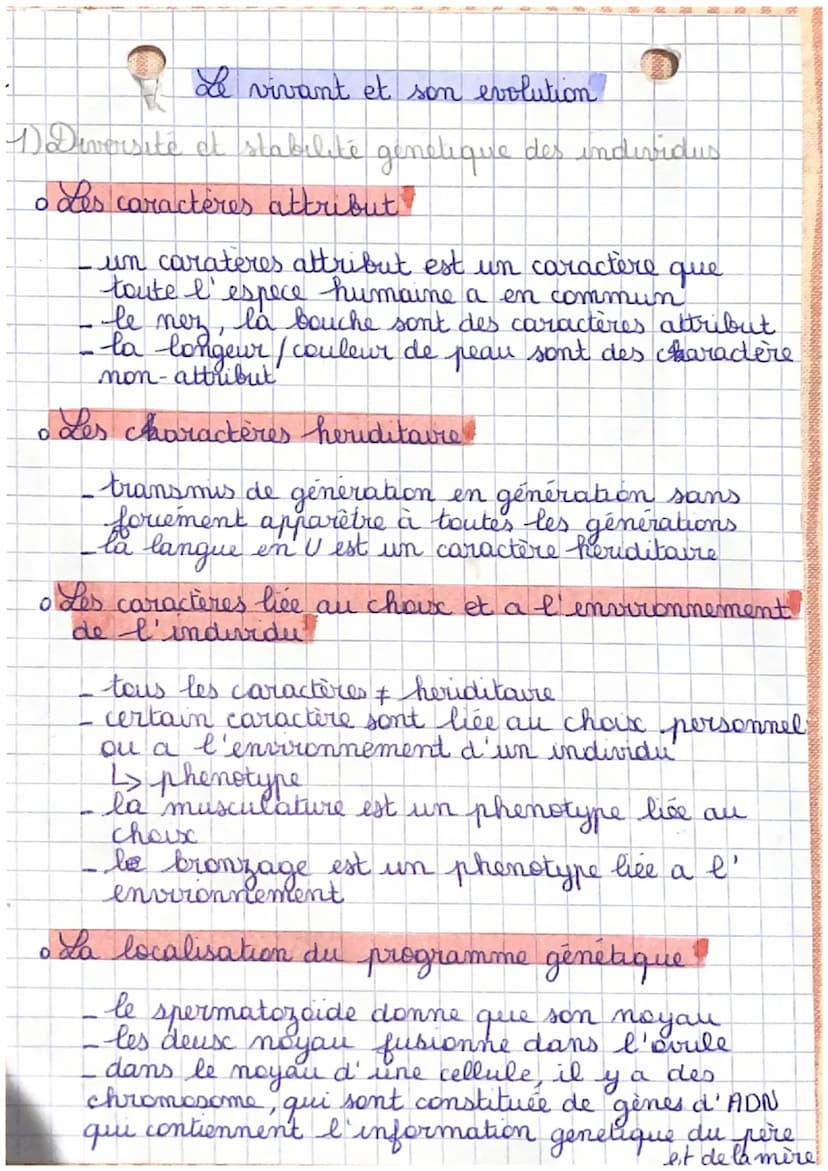 Le vivant et son evolution
1) Diversité et stabilité génétique des individus
Les caractères attribut
- un caratères attribut est un caractère que
toute l'espece humaine a en commun
- le nez, la bouche sont des caractères attribut
- la longeur/couleur de peau sont des charactère
non-attribut
Les charactères heriditaire
- transmis de génération en génération sans
forcement apparêtre à toutes les générations
- la langue en U est un caractère hériditaire
Les caractères liée au choix et a l'environnement
de l'individu
- tous les caractères ≠ heriditaire
- certain caractère sont liée au choix personnel
ou a l'environnement d'un individu
↳ phenotype
- la musculature est un phenotype liée au
choix
- le bronzage est un phenotype liée a l'
environnement
La localisation du programme génétique
- le spermatozoïde donne que son noyau
- les deux noyau fusionne dans l'ovule
- dans le noyau d'une cellule, il y a des
chromosome, qui sont constituée de gènes d'ADN
qui contiennent l'information genetique du père
et de la mère